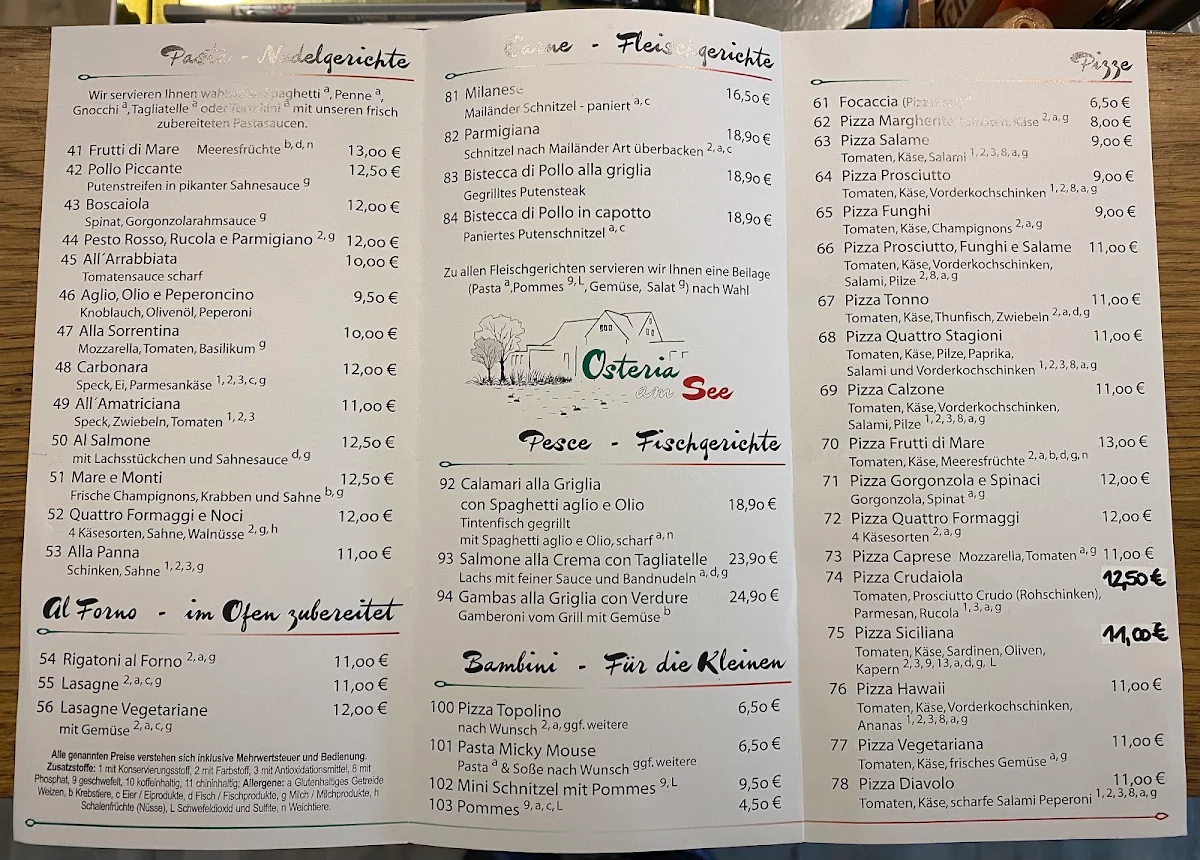 Pasta - Nudelgerichte
Wir servieren Ihnen Spaghetti a, Penne a,
Gnocchi a, Tagliatelle a oder a mit unseren frisch
zubereiteten Pastasaucen.
41 Frutti di Mare Meeresfrüchte b, d, n 13,00 €
42 Pollo Piccante 12,50 €
Putenstreifen in pikanter Sahnesauce g
43 Boscaiola 12,00 €
Spinat, Gorgonzolarahmsauce g
44 Pesto Rosso, Rucola e Parmigiano 2, g 12,00 €
45 All´Arrabbiata 10,00 €
Tomatensauce scharf
46 Aglio, Olio e Peperoncino 9,50 €
Knoblauch, Olivenöl, Peperoni
47 Alla Sorrentina 10,00 €
Mozzarella, Tomaten, Basilikum g
48 Carbonara 12,00 €
Speck, Ei, Parmesankäse 1, 2, 3, c, g
49 All´Amatriciana 11,00 €
Speck, Zwiebeln, Tomaten 1, 2, 3
50 Al Salmone 12,50 €
mit Lachsstückchen und Sahnesauce d, g
51 Mare e Monti 12,50 €
Frische Champignons, Krabben und Sahne b, g
52 Quattro Formaggi e Noci 12,00 €
4 Käsesorten, Sahne, Walnüsse 2, g, h
53 Alla Panna 11,00 €
Schinken, Sahne 1, 2, 3, g
Al Forno - im Ofen zubereitet
54 Rigatoni al Forno 2, a, g 11,00 €
55 Lasagne 2, a, c, g 11,00 €
56 Lasagne Vegetariane 12,00 €
mit Gemüse 2, a, c, g
Alle genannten Preise verstehen sich inklusive Mehrwertsteuer und Bedienung.
Zusatzstoffe: 1 mit Konservierungsstoff, 2 mit Farbstoff, 3 mit Antioxidationsmittel, 8 mit
Phosphat, 9 geschwefelt, 10 koffeinhaltig, 11 chininhaltig; Allergene: a Glutenhaltiges Getreide
Weizen, b Krebstiere, c Eier / Eiprodukte, d Fisch / Fischprodukte, g Milch / Milchprodukte, h
Schalenfrüchte (Nüsse), L Schwefeldioxid und Sulfite, n Weichtiere.
Carne - Fleischgerichte
81 Milanese 16,50 €
Mailänder Schnitzel - paniert a, c
82 Parmigiana 18,90 €
Schnitzel nach Mailänder Art überbacken 2, a, c
83 Bistecca di Pollo alla griglia 18,90 €
Gegrilltes Putensteak
84 Bistecca di Pollo in capotto 18,90 €
Paniertes Putenschnitzel a, c
Zu allen Fleischgerichten servieren wir Ihnen eine Beilage
(Pasta a, Pommes 9, L, Gemüse, Salat g) nach Wahl
Osteria
am See
Pesce - Fischgerichte
92 Calamari alla Griglia
con Spaghetti aglio e Olio 18,90 €
Tintenfisch gegrillt
mit Spaghetti aglio e Olio, scharf a, n
93 Salmone alla Crema con Tagliatelle 23,90 €
Lachs mit feiner Sauce und Bandnudeln a, d, g
94 Gambas alla Griglia con Verdure 24,90 €
Gamberoni vom Grill mit Gemüse b
Bambini - Für die Kleinen
100 Pizza Topolino 6,50 €
nach Wunsch 2, a, ggf. weitere
101 Pasta Micky Mouse 6,50 €
Pasta a & Soße nach Wunsch ggf. weitere
102 Mini Schnitzel mit Pommes 9, L 9,50 €
103 Pommes 9, a, c, L 4,50 €
Pizze
61 Focaccia 6,50 €
62 Pizza Margherite Tomaten, Käse 2, a, g 8,00 €
63 Pizza Salame 9,00 €
Tomaten, Käse, Salami 1, 2, 3, 8, a, g
64 Pizza Prosciutto 9,00 €
Tomaten, Käse, Vorderkochschinken 1, 2, 8, a, g
65 Pizza Funghi 9,00 €
Tomaten, Käse, Champignons 2, a, g
66 Pizza Prosciutto, Funghi e Salame 11,00 €
Tomaten, Käse, Vorderkochschinken,
Salami, Pilze 2, 8, a, g
67 Pizza Tonno 11,00 €
Tomaten, Käse, Thunfisch, Zwiebeln 2, a, d, g
68 Pizza Quattro Stagioni 11,00 €
Tomaten, Käse, Pilze, Paprika,
Salami und Vorderkochschinken 1, 2, 3, 8, a, g
69 Pizza Calzone 11,00 €
Tomaten, Käse, Vorderkochschinken,
Salami, Pilze 1, 2, 3, 8, a, g
70 Pizza Frutti di Mare 13,00 €
Tomaten, Käse, Meeresfrüchte 2, a, b, d, g, n
71 Pizza Gorgonzola e Spinaci 12,00 €
Gorgonzola, Spinat a, g
72 Pizza Quattro Formaggi 12,00 €
4 Käsesorten 2, a, g
73 Pizza Caprese Mozzarella, Tomaten a, g 11,00 €
74 Pizza Crudaiola 12,50 €
Tomaten, Prosciutto Crudo (Rohschinken),
Parmesan, Rucola 1, 3, a, g
75 Pizza Siciliana 11,00 €
Tomaten, Käse, Sardinen, Oliven,
Kapern 2, 3, 9, 13, a, d, g, L
76 Pizza Hawaii 11,00 €
Tomaten, Käse, Vorderkochschinken,
Ananas 1, 2, 3, 8, a, g
77 Pizza Vegetariana 11,00 €
Tomaten, Käse, frisches Gemüse a, g
78 Pizza Diavolo 11,00 €
Tomaten, Käse, scharfe Salami Peperoni 1, 2, 3, 8, a, g